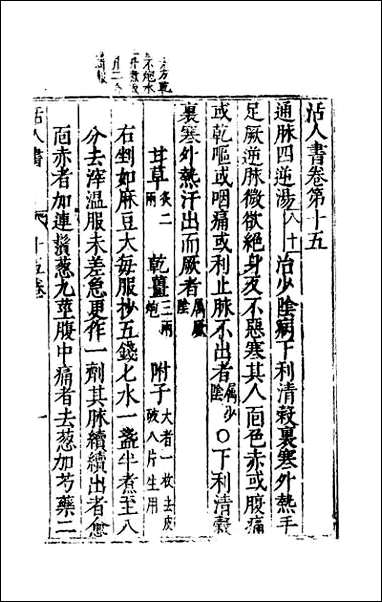 活人書卷第十五
通脉四逆湯八十治少陰病下利清穀裏寒外熱手
足厥逆脉微欲絶身反不惡寒其人面色赤或腹痛
或乾嘔或咽痛或利止脉不出者屬少陰〇下利清穀
裏寒外熱汗出而厥者屬厥陰
甘草炙二兩 乾薑三兩炮 附子大者一枚去皮破八片生用
右剉如麻豆大每服抄五錢七水一盞半煮至八
分去滓温服未差急更作一劑其脉續續出者愈
面赤者加連鬚葱九莖腹中痛者去葱加芍藥二
活人書 十五卷 一